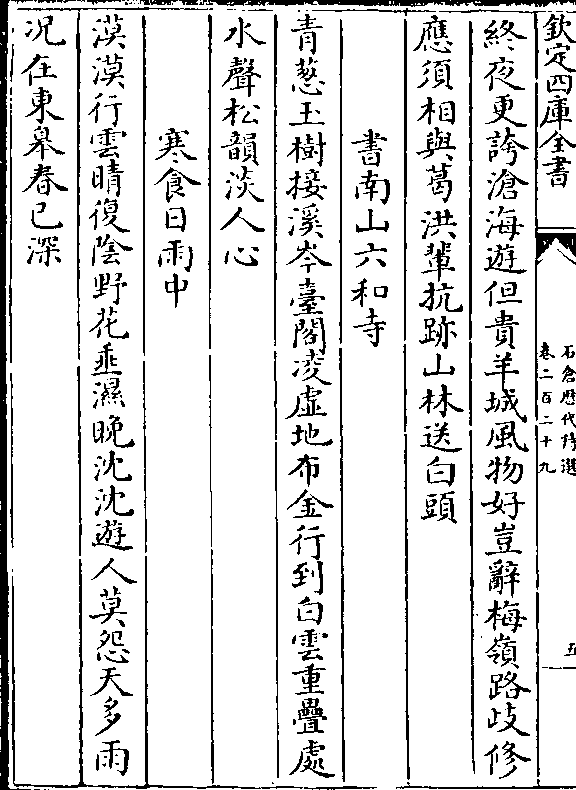 欽定四庫全書
石倉歴代詩選
卷二百二十九
五
終夜更誇滄海遊但貴羊城風物好豈辭梅嶺路歧修
應須相與葛洪輩抗跡山林送白頭
書南山六和寺
青葱玉樹接溪岑臺閣凌虛地布金行到白雲重疊處
水聲松韻淡人心
寒食日雨中
漠漠行雲晴復陰野花垂濕晚沈沈遊人莫怨天多雨
况在東皋春已深